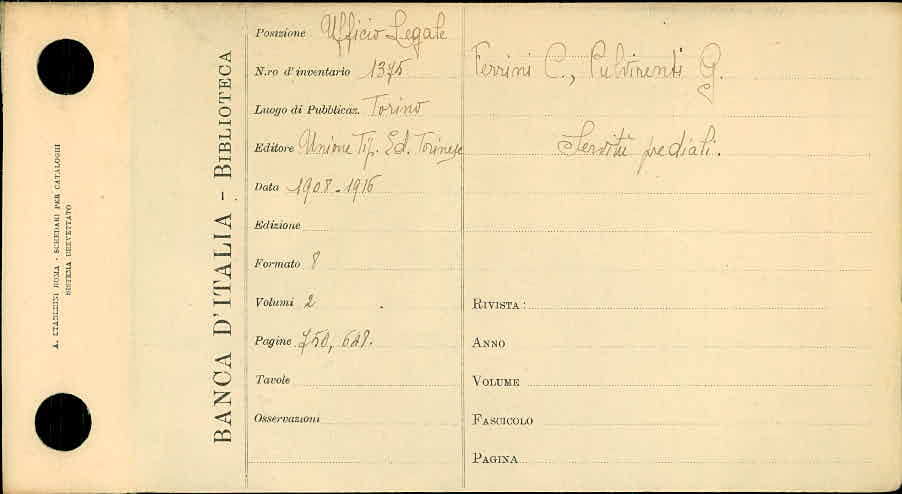 A. STADERINI ROMA - SCHEDARI PER CATALOGHI
SISTEMA BREVETTATO
BANCA D'ITALIA - BIBLIOTECA
Posizione Ufficio Legale
N.ro d'inventario 1375
Luogo di Pubblicaz. Torino
Editore Unione Tip. Ed. Torinese
Data 1908-1916
Edizione
Formato 8
Volumi 2
Pagine 750, 628.
Tavole
Osservazioni
Ferrini C., Pulvirenti G.
Servitù prediali.
RIVISTA:
ANNO
VOLUME
FASCICOLO
PAGINA